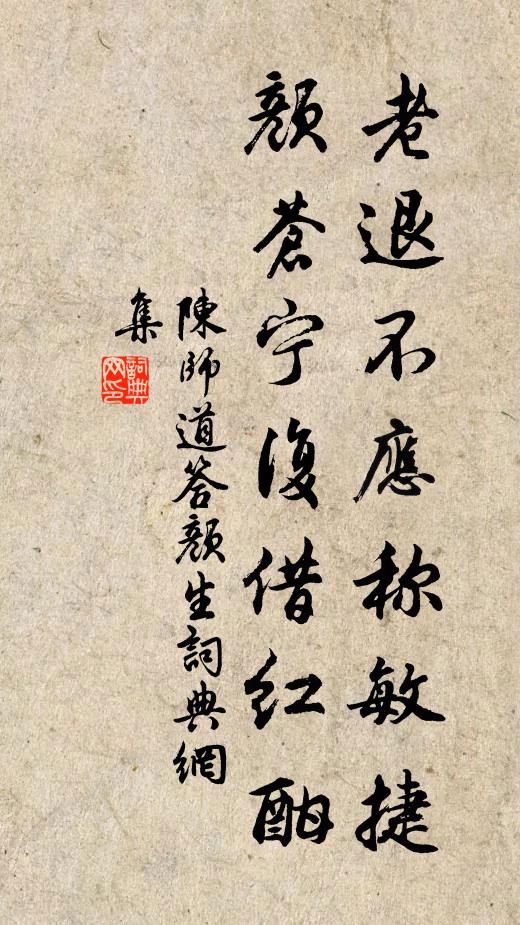 老退不應称敏捷
顏蒼宁復借紅酣
陳師道答顏生詞典網
集
詞典
网印